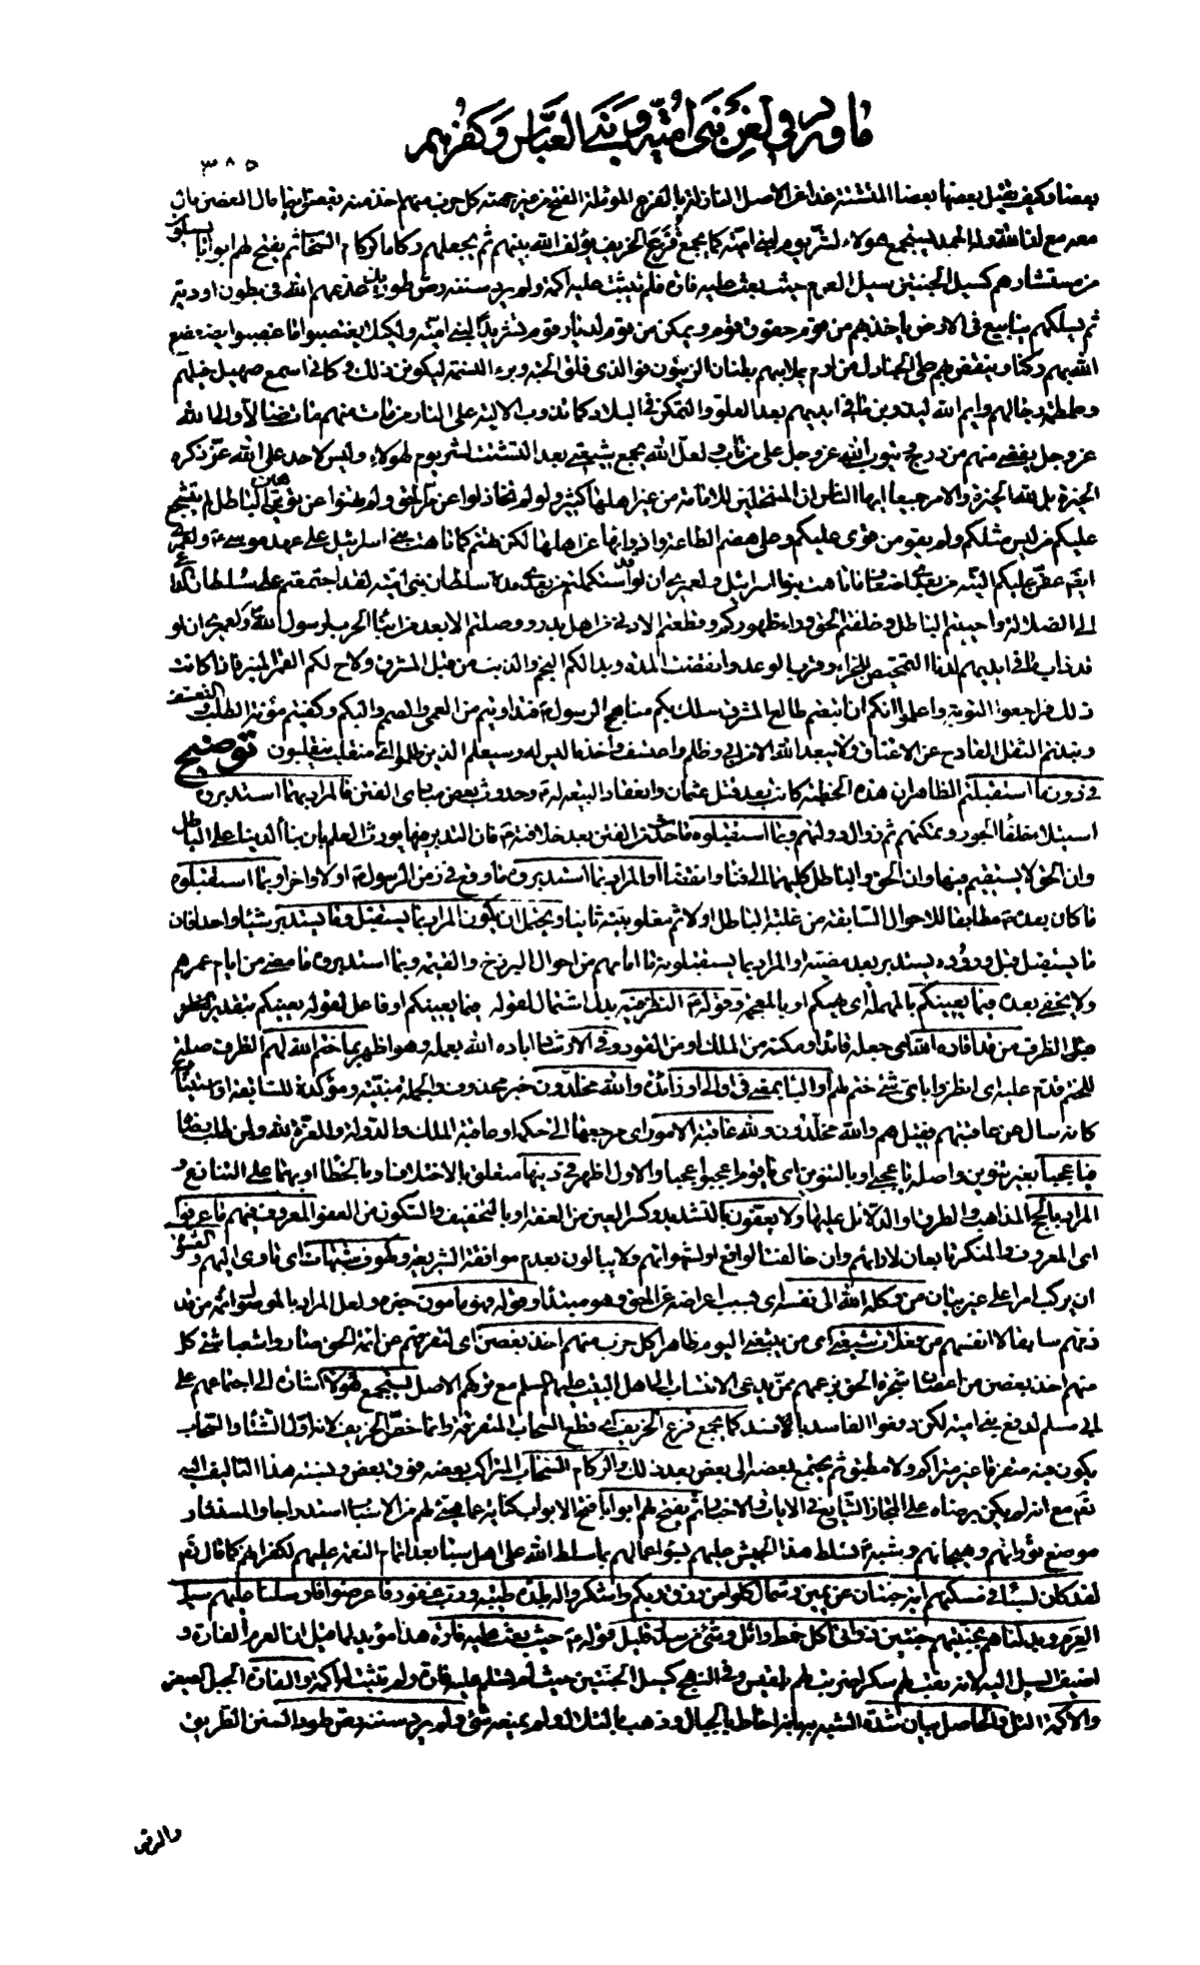 ما ورد في لعن بني امية وبني العباس وكفرهم
٣٨٥
بعضا وكيف يقتل بعضها بعضا المتشتتة غدا عن الاصل النازلة بالفرع المؤملة الفتح من غير جهته كل حزب منهم اخذ منه بغصن اينما مال الغصن مال
معه مع ان الله وله الحمد سيجمع هؤلاء لشر يوم لبني امية كما يجمع قزع الخريف يؤلف الله بينهم ثم يجعلهم ركاما كركام السحاب ثم يفتح لهم ابوابا يسيلون
من مستثارهم كسيل الجنتين سيل العرم حيث بعث عليه فارة فلم يثبت عليه اكمة ولم يرد سننه رص طود يذعذعهم الله في بطون اودية
ثم يسلكهم ينابيع في الارض ياخذ بهم من قوم حقوق قوم ويمكن من قوم لديار قوم تشريدا لبني امية ولكيلا يغتصبوا ما غصبوا يضعضع
الله بهم ركنا وينقض بهم طي الجنادل من ارم ويملا بهم بطنان الزيتون فوالذي فلق الحبة وبرء النسمة ليكونن ذلك وكاني اسمع صهيل خيلهم
وطمطمة رجالهم وايم الله ليذوبن ما في ايديهم بعد العلو والتمكن في البلاد كما تذوب الالية على النار من مات منهم مات ضالا والى الله
عز وجل يفضي منهم من درج ويتوب الله عز وجل على من تاب ولعل الله يجمع شيعتي بعد التشتت لشر يوم لهؤلاء وليس لاحد على الله عز ذكره
الخيرة بل لله الخيرة والامر جميعا ايها الناس ان المنتحلين للامامة من غير اهلها كثير ولو لم تتخاذلوا عن مر الحق ولم تهنوا عن توهين الباطل لم يتشجع
عليكم من ليس مثلكم ولم يقو من قوي عليكم وعلى هضم الطاعة وازوائها عن اهلها لكن تهتم كما تاهت بنو اسرائيل على عهد موسى ولعمري
ليضاعفن عليكم التيه من بعدي اضعاف ما تاهت بنو اسرائيل ولعمري ان لو قد استكملتم من بعدي مدة سلطان بني امية لقد اجتمعتم على سلطان الداعي
الى الضلالة واحييتم الباطل وخلفتم الحق وراء ظهوركم وقطعتم الادنى من اهل بدر ووصلتم الابعد من ابناء الحرب لرسول الله ولعمري ان لو
قد ذاب ما في ايديهم لدنا التمحيص للجزاء وقرب الوعد وانقضت المدة وبدا لكم النجم ذو الذنب من قبل المشرق ولاح لكم القمر المنير فاذا كانت
ذلك فراجعوا التوبة واعلموا انكم ان اتبعتم طالع المشرق سلك بكم مناهج الرسول فتداويتم من العمى والصم والبكم وكفيتم مؤنة الطلب والتعسف
ونبذتم الثقل الفادح عن الاعناق ولا يبعد الله الا من ابى وظلم واعتسف واخذ ما ليس له وسيعلم الذين ظلموا اي منقلب ينقلبون توضيح
في دون ما استقبلتم الظاهر ان هذه الخطبة كانت بعد قتل عثمان وانعقاد البيعة له وحدوث بعض مبادي الفتن فالمراد بما استدبروه
استيلاء خلفاء الجور وتمكنهم ثم زوال دولتهم وبما استقبلوه ما حدث من الفتن بعد خلافته فان التدبر فيها يورث العلم بان بناء الدنيا على الباطل
وان الحق لا يستقيم فيها وان الحق والباطل كليهما الى فناء وانقضاء او المراد بما استدبروه ما وقع في زمن الرسول اولا واخرا وبما استقبلوه
ما كان بعده مطابقا للاحوال السابقة من غلبة الباطل اولا ثم مغلوبيته ثانيا ويحتمل ان يكون المراد بما يستقبل وما يستدبر شيئا واحدا فان
ما يستقبل قبل وروده يستدبر بعد مضيه او المراد بما يستقبلونه ما امامهم من احوال البرزخ والقيمة وبما استدبروه ما مضى من ايام عمرهم
ولا يخفى بعده فيما يعنيكم بالمهملة اي يهمكم او بالمعجمة وقوله النظر فيه بدل اشتمال لقوله فيما يعنيكم او فاعل لقوله يعنيكم بتقدير النظر
قبل الظرف من قد اقاده الله اي جعله قائدا ومكنه من الملك او من القود وفي الارشاد اباده الله بعمله وهو اظهر بما ختم الله لهم الظرف صلة
للختم قدم عليه اي انظروا باي شئ ختم لهم او الباء بمعنى في او الى او زائدة والله مخلدون خبر محذوف والجملة مبينة ومؤكدة للسابقة او استيناف
كانه سال عن عاقبتهم فقيل هم والله مخلدون ولله عاقبة الامور اي مرجعها الى حكمه او عاقبة الملك والدولة والعزة لله ولمن طلب رضاه
فيا عجبا بغير تنوين واصله يا عجبي او بالتنوين اي يا قوم اعجبوا عجبا والاول اظهر في دينها متعلق بالاختلاف او بالخطأ او بهما على التنازع و
المراد بالحجج المذاهب والطرق او الدلائل عليها ولا يعفون بالتشديد وكسر العين من العفة او بالتخفيف والسكون من العفو المعروف فيهم ما عرفوا
اي المعروف والمنكر تابعان لارائهم وان خالفتا الواقع او لشهواتهم ولا يبالون بعدم موافقة الشريعة
ان يركب امرا على غير بيان من وكله الله الى نفسه اي بسبب اعراضه عن الحق وهو مبتدأ وقوله فهو مأمون خبره ولعل المراد بالموصول ائمة من قد
ذمهم سابقا لا انفسهم من فعلات شيعتي اي من يتبعني اليوم ظاهرا كل حزب منهم اخذ بغصن اي لتفرقهم عن ائمة الحق صاروا شعبا شتى كل
منهم اخذ بغصن من اغصان شجرة الحق بزعهم ممن يدعي الانتساب الى اهل البيت عليهم السلم مع تركهم الاصل سيجمع هؤلاء اشارة الى اجتماعهم على
ابي مسلم لدفع بني امية لكن دفعوا الفاسد بالافسد كما يجمع قزع الخريف اي قطع السحاب المتفرقة وانما خص الخريف لانه اول الشتاء والسحاب
يكون فيه متفرقا غير متراكم ولا مطبق ثم يجتمع بعضه الى بعض بعد ذلك والركام السحاب المتراكب بعضه فوق بعض ونسبة هذا التاليف اليه
تعم مع انه لم يكن برضاه على المجاز الشايع في الايات والاخبار ثم يفتح لهم ابوابا فتح الابواب كناية عما هيئ لهم من الاسباب استدراجا والمستثار
موضع ثورانهم وهيجانهم وشبه تسلط هذا الجيش عليهم بسوء اعمالهم بما سلط الله على اهل سبا بعد اتمام النعمة عليهم لكفرانهم كما قال تعم
لقد كان لسبأ في مسكنهم اية جنتان عن يمين وشمال كلوا من رزق ربكم واشكروا له بلدة طيبة ورب غفور فاعرضوا فارسلنا عليهم سيل
العرم وبدلناهم بجنتيهم جنتين ذواتي اكل خمط واثل وشئ من سدر قليل قوله حيث بعث عليه فارة هذا مؤيد لما قيل ان العرم الفارة و
اضيف السيل اليه لانه نقب لهم سكرا ضربت لهم بلقيس وفي النهج كسيل الجنتين حيث لم تسلم عليه قارة ولم تثبت له اكمة والقارة الجبل الصغير
والاكمة التل والحاصل بيان شدة السيل المشبه به بانه احاط بالجبال وذهب بالتلال ولم يمنعه شئ ولم يرد سننه رص طود السنن الطريق
والرص